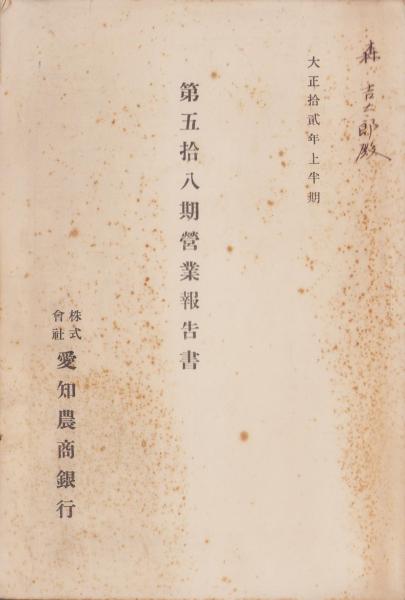 森吉太郎殿
大正拾貳年上半期
第五拾八期營業報告書
株式會社愛知農商銀行